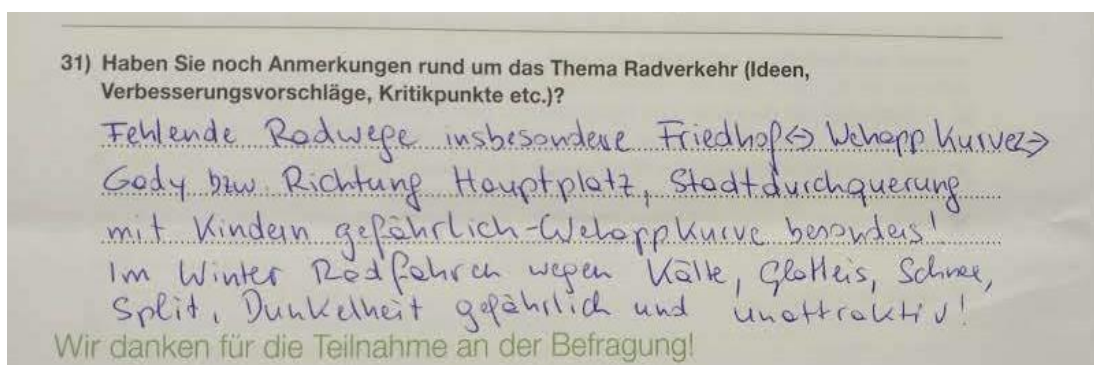 31) Haben Sie noch Anmerkungen rund um das Thema Radverkehr (Ideen,
Verbesserungsvorschläge, Kritikpunkte etc.)?
Fehlende Radwege insbesondere Friedhof <-> Wehapp Kurve <->
Gady bzw. Richtung Hauptplatz, Stadtdurchquerung
mit Kindern gefährlich - Wehapp Kurve besonders!
Im Winter Radfahren wegen Kälte, Glatteis, Schnee,
Split, Dunkelheit gefährlich und unattraktiv!
Wir danken für die Teilnahme an der Befragung!